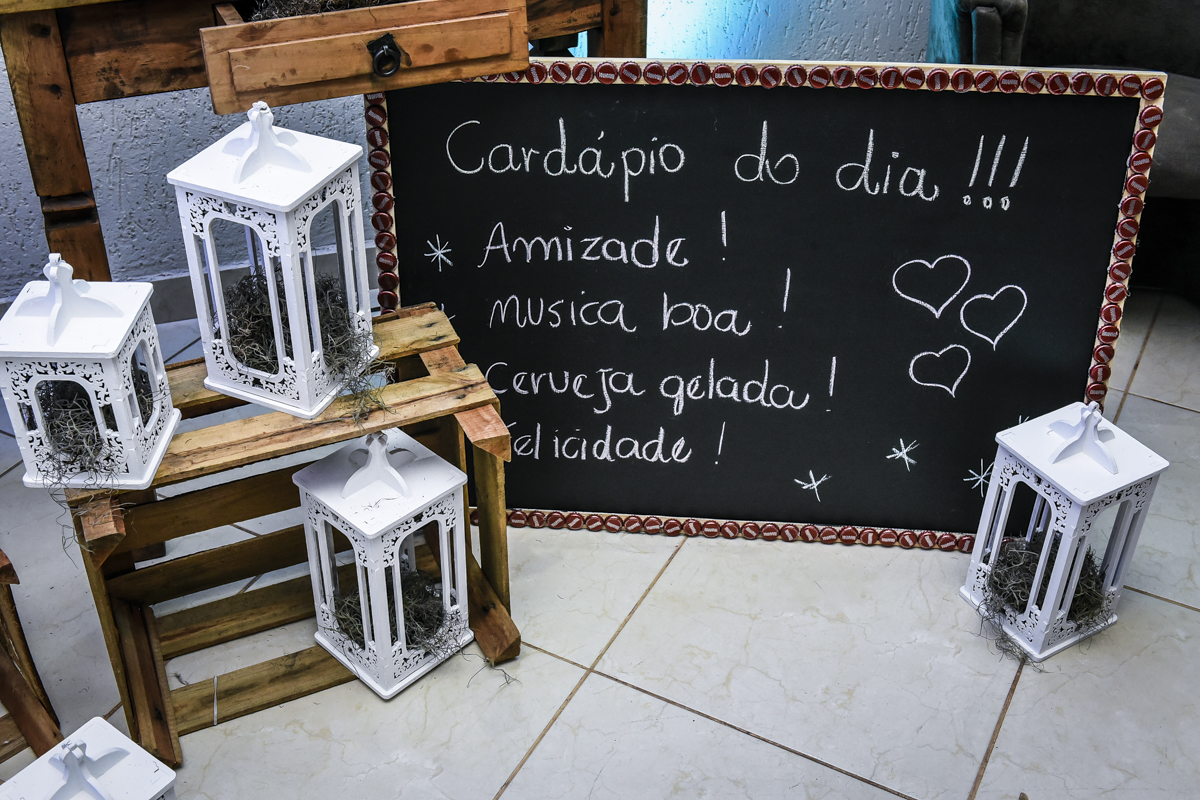 Cardápio do dia !!!
Amizade !
musica boa !
Cerveja gelada !
felicidade !